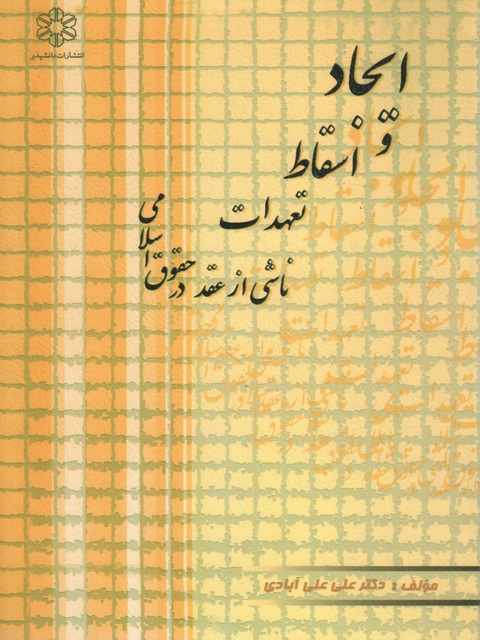 انتشارات دانشپذیر
ایجاد
و
اسقاط
تعهدات
ناشی از عقد در حقوق اسلامی
مؤلف : دکتر علی علی آبادی